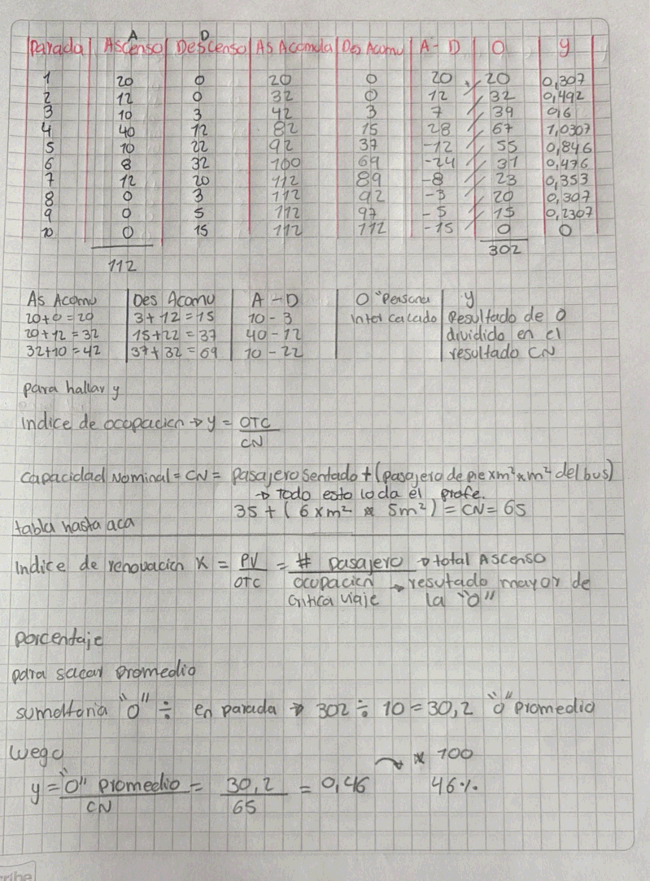 A D
Parada Ascenso Descenso As Acomula Des Acomu A - D O y
1 20 0 20 0 20 20 0,307
2 12 0 32 0 12 32 0,492
3 10 3 42 3 7 39 0,6
4 40 12 82 15 28 67 1,0307
5 10 22 92 37 -12 55 0,846
6 8 32 100 69 -24 31 0,476
7 12 20 112 89 -8 23 0,353
8 0 3 112 92 -3 20 0,307
9 0 5 112 97 -5 15 0,2307
10 0 15 112 112 -15 0 0
112 302
As Acomu Des Acomu A - D O "Persona y
20+0=20 3+12=15 10-3 intercalado Resultado de O
20+12=32 15+22=37 40-12 dividido en el
32+10=42 37+32=69 10-22 resultado CN
para hallar y
Indice de ocopacion → y = OTC
CN
capacidad Nominal = CN = pasajero sentado + (pasajero de pie x m² x m² del bus)
→ Todo esto lo da el profe.
35 + (6 x m² * 5m²) = CN = 65
tabla hasta aca
Indice de renovacion X = PV = # pasajero → total Ascenso
OTC ocupacion → resutado mayor de
Critica viaje la "O"
porcentaje
para sacar promedio
sumottoria "O" ÷ en parada → 302 ÷ 10 = 30,2 "O" promedio
luego * 100
y = "O" promedio = 30,2 = 0,46 46%
CN 65